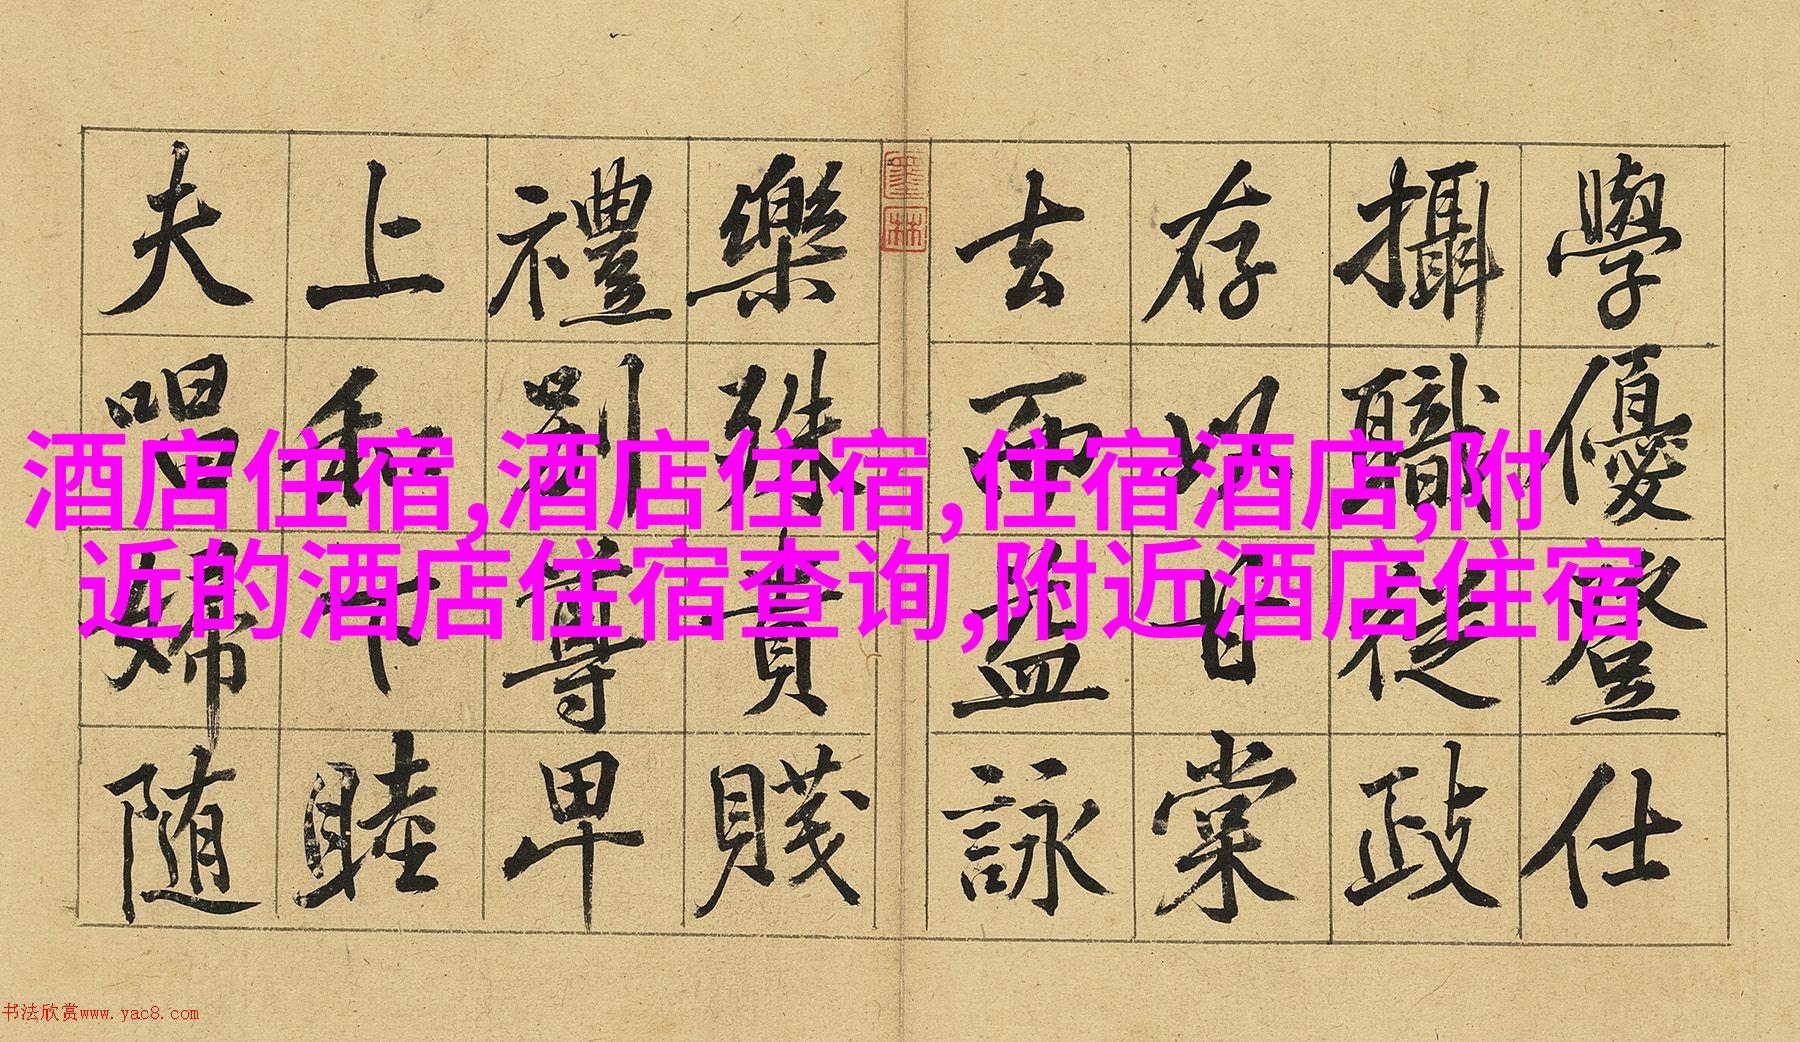 學優登仕
攝職從政
存以甘棠
去而益詠
樂殊貴賤
禮別尊卑
上和下睦
夫唱婦随
墨林
酒店住宿,酒店住宿,住宿酒店,附
近的酒店住宿查询,附近酒店住宿
书法欣赏www.yac8.com